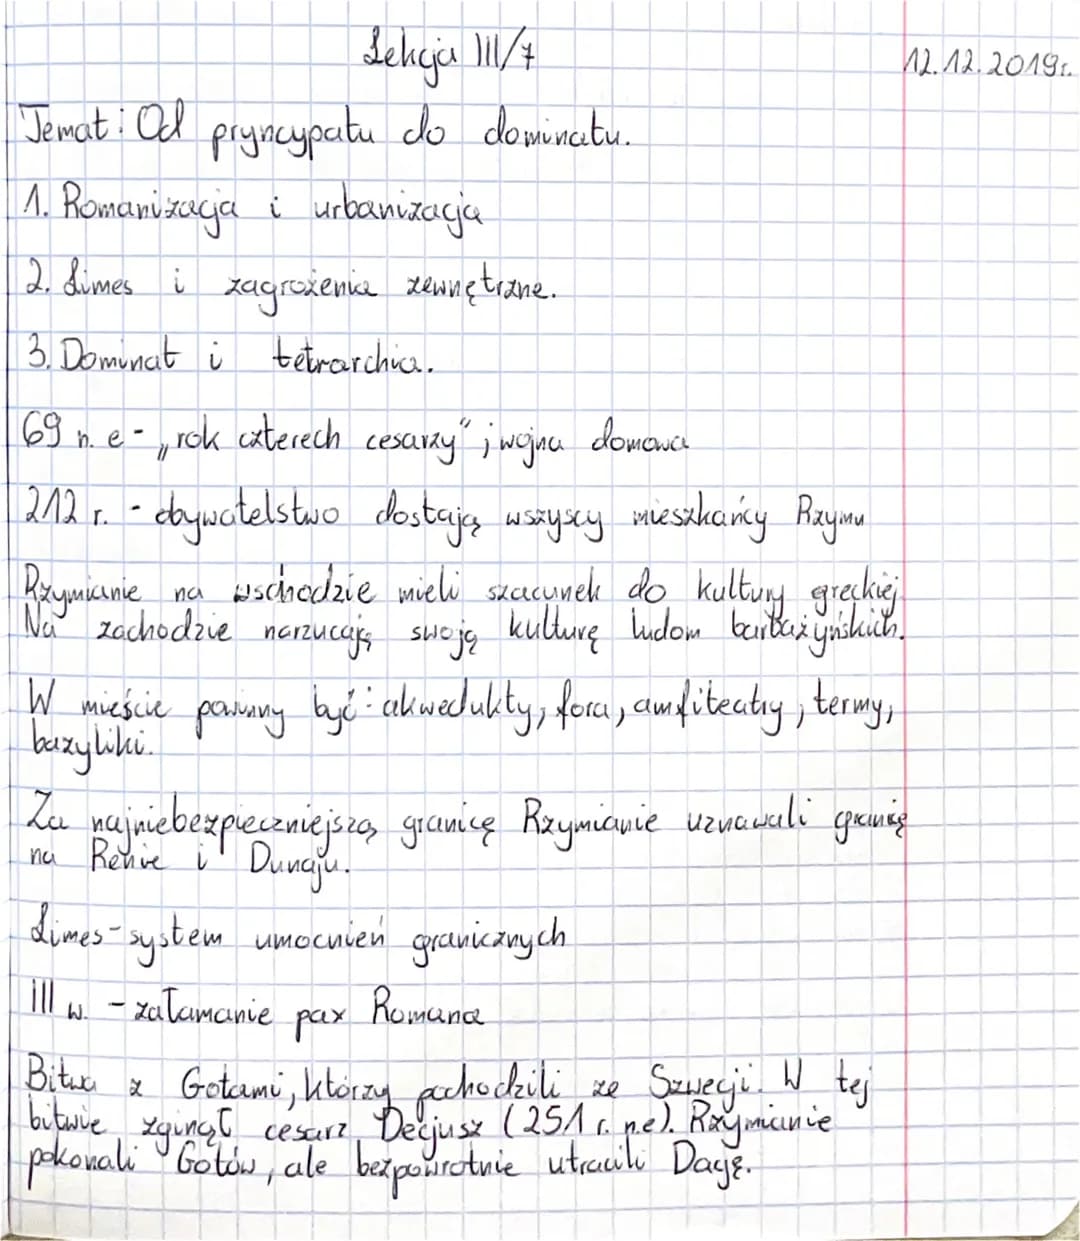 Lekcja III/7
12.12.2019r.
Temat: Od pryncypatu do dominatu.
1. Romanizacja i urbanizacja
2. Limes i zagrożenia zewnętrzne.
3. Dominat i tetrarchia.
69 n. e - „rok czterech cesarzy"; wojna domowa
212 r. - obywatelstwo dostają wszyscy mieszkańcy Rzymu
Rzymianie na wschodzie mieli szacunek do kultury greckiej.
Na zachodzie narzucają swoją kulturę ludom barbażyńskich.
W mieście powinny być: akwedukty, fora, amfiteatry, termy,
bazyliki.
Za najniebezpieczniejszą granicę Rzymianie uznawali granicę
na Renie i Dunaju.
Limes-system umocnień granicznych
III w. - załamanie pax Romana
Bitwa z Gotami, którzy pochodzili ze Szwecji. W tej
bitwie zginął cesarz Decjusz (251 r. n.e). Rzymianie
pokonali Gotów, ale bezpowrotnie utracili Dację.